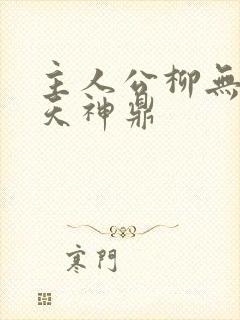 主人公柳無
天神鼎
寒門